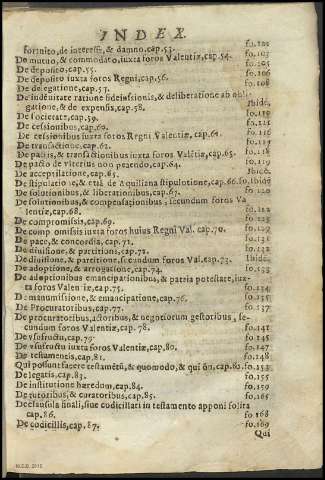 INDEX.
fortuito, de interesse, & damno, cap. 53. fo. 101
De mutuo, & commodato, iuxta foros Valentiæ, cap. 54. fo. 105
De deposito, cap. 55. fo. 106
De deposito iuxta foros Regni, cap. 56. fo. 108
De delegatione, cap. 57.
De indemnitate ratione fideiussionis, & deliberatione ab obli-
gatione, & de expensis, cap. 58. Ibidẽ.
De societate, cap. 59.
De cessionibus, cap. 60.
De cessionibus iuxta foros Regni Valentiæ, cap. 61. fo. 116
De transactione, cap. 62. fo. 117
De pactis, & transactionibus iuxta foros Valẽtiæ, cap. 63. fo. 118
De pacto de vlterius non petendo, cap. 64. fo. 119
De acceptilatione, cap. 65. Ibidẽ.
De stipulatione, & de aquiliana stipulatione, cap. 66. fo. Ibidẽ
De solutionibus, & liberationibus, cap. 67.
De solutionibus, & compensationibus, secundum foros Va
lentiæ, cap. 68.
De compromissis, cap. 69.
De compromissis iuxta foros huius Regni Val. cap. 70. fo. 129
De pace, & concordia, cap. 71. fo. 131
De diuisione, & partitione, cap. 72. fo. 132
De diuisione, & partitione, secundum foros Val. cap. 73. Ibidẽ
De adoptione, & arrogatione, cap. 74. fo. 133
De adoptionibus emancipationibus, & patria potestate, iux-
ta foros Valentiæ, cap. 75. fo. 134
De manumissione, & emancipatione, cap. 76. fo. 135
De Procuratoribus, cap. 77. fo. 137
De procuratoribus, actoribus, & negotiorum gestoribus, se-
cundum foros Valentiæ, cap. 78. fo. 141
De vsufructu, cap. 79. fo. 145
De vsufructu iuxta foros Valentiæ, cap. 80. fo. 147
De testamentis, cap. 81. fo. 148
Qui possunt facere testamẽtũ, & quomodo, & qui nõ, cap. 82. fo. 153
De legatis, cap. 83. fo. 155
De institutione hæredum, cap. 84. fo. 159
De tutoribus, & curatoribus, cap. 85. fo. 165
De clausula finali, siue codicillari in testamento apponi solita
cap. 86. fo 168
De codicillis, cap. 87. fo. 169
Qui